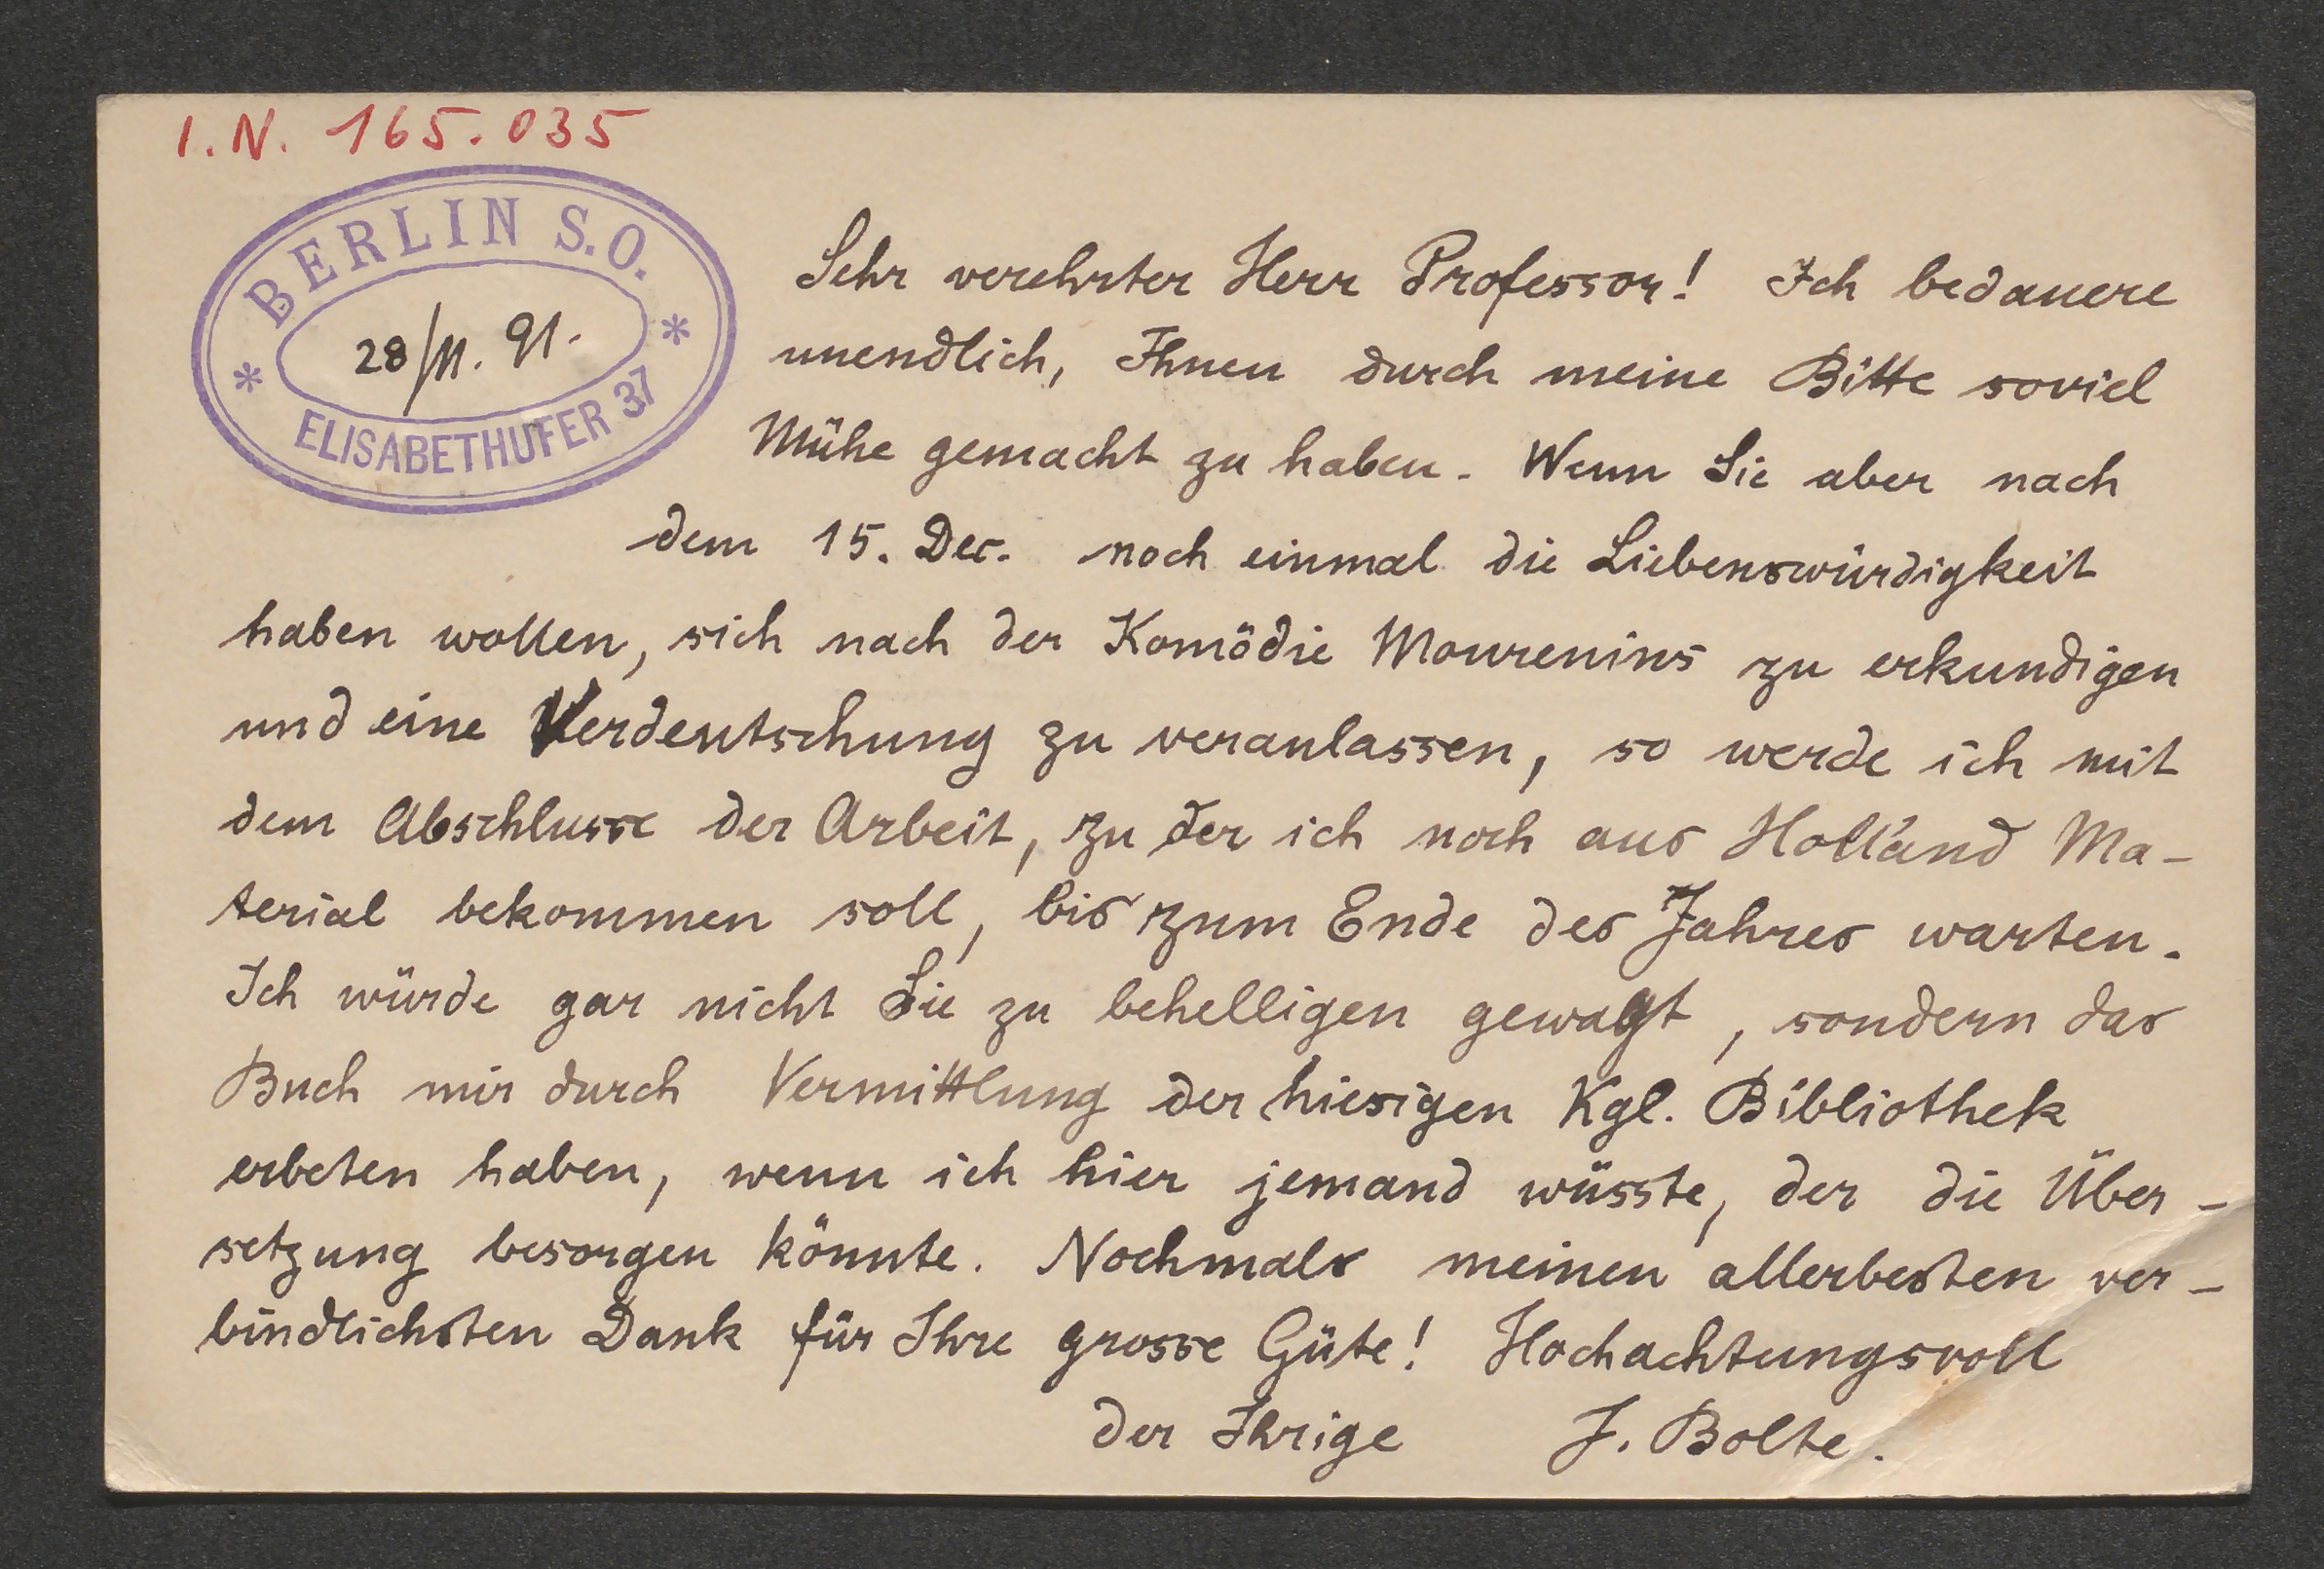 I.N. 165.035
BERLIN S.O.
28/11. 91.
ELISABETHUFER 37
Sehr verehrter Herr Professor! Ich bedauere
unendlich, Ihnen durch meine Bitte soviel
Mühe gemacht zu haben. Wenn Sie aber nach
dem 15. Dec. noch einmal die Liebenswürdigkeit
haben wollen, sich nach der Komödie Mourenins zu erkundigen
und eine Verdeutschung zu veranlassen, so werde ich mit
dem Abschlusse der Arbeit, zu der ich noch aus Holland Ma-
terial bekommen soll, bis zum Ende des Jahres warten.
Ich würde gar nicht Sie zu behelligen gewagt, sondern das
Buch mir durch Vermittlung der hiesigen Kgl. Bibliothek
erbeten haben, wenn ich hier jemand wüsste, der die Über-
setzung besorgen könnte. Nochmals meinen allerbesten ver-
bindlichsten Dank für Ihre grosse Güte! Hochachtungsvoll
der Ihrige J. Bolte.